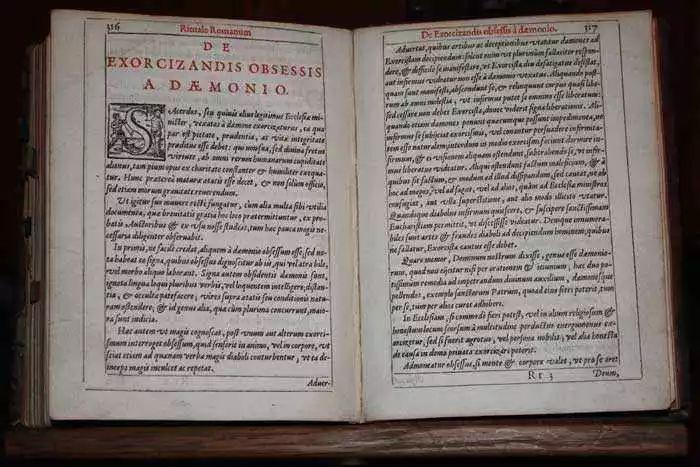 316
Rituale Romanum
DE
EXORCIZANDIS OBSESSIS
A DÆMONIO.
SAcerdos, seu quiuis alius legitimus Ecclesiæ mi-
nister, vexatos à dæmone exorcizaturus, ea qua
par est pietate, prudentia, ac vitæ integritate
præditus esse debet: qui non sua, sed diuina fretus
virtute, ab omni rerum humanarum cupiditate
alienus, tam pium opus ex charitate constanter & humiliter exequa-
tur. Hunc præterea maturæ ætatis esse decet, & non solum officio,
sed etiam morum grauitate reuerendum.
Vt igitur suo munere rectè fungatur, cum alia multa sibi vtilia
documenta, quæ breuitatis gratia hoc loco prætermittuntur, ex pro-
batis Auctoribus & ex vsu nosse studeat; tum hæc pauca magis ne-
cessaria diligenter obseruabit.
In primis, ne facilè credat, aliquem à dæmonio obsessum esse, sed no-
ta habeat ea signa, quibus obsessus dignoscitur ab iis, qui vel atra bile,
vel morbo aliquo laborant. Signa autem obsidentis dæmonis sunt,
ignota lingua loqui pluribus verbis, vel loquentem intelligere; distan-
tia, & occulta patefacere, vires supra ætatis seu conditionis natu-
ram ostendere; & id genus alia, quæ cùm plurima concurrunt, maio-
ra sunt indicia.
Hæc autem vt magis cognoscat, post vnum aut alterum exorci-
smum interroget obsessum, quid senserit in animo, vel in corpore, vt
sciat etiam ad quænam verba magis diaboli conturbentur, vt ea de-
inceps magis inculcet ac repetat.
Aduer-
De Exorcizandis obsessis à dæmonio.
317
Aduertat, quibus artibus ac deceptionibus vtantur dæmones ad
Exorcistam decipiendum: solent enim vt plurimùm fallaciter respon-
dere, & difficilè se manifestare, vt Exorcista diu defatigatus desistat,
aut infirmus videatur non esse à dæmonio vexatus. Aliquando post-
quam sunt manifesti, abscondunt se, & relinquunt corpus quasi libe-
rum ab omni molestia, vt infirmus putet se omnino esse liberatum:
sed cessare non debet Exorcista, donec viderit signa liberationis. Ali-
quando etiam dæmones ponunt quæcumque possunt impedimenta, ne
infirmus se subijciat exorcismis, vel conantur persuadere infirmita-
tem esse naturalem; interdum in medio exorcismi faciunt dormire in-
firmum, & ei visionem aliquam ostendunt, subtrahendo se, vt infir-
mus liberatus videatur. Aliqui ostendunt factum maleficium, & à
quibus sit factum, & modum ad illud dissipandum; sed caueat, ne ob
hoc ad magos, vel ad sagas, vel ad alios, quàm ad Ecclesiæ ministros
confugiat, aut vlla superstitione, aut alio modo illicito vtatur.
Quandoque diabolus infirmum quiescere, & suscipere sanctissimam
Eucharistiam permittit, vt discessisse videatur. Denique innumera-
biles sunt artes & fraudes diaboli ad decipiendum hominem; quibus
ne fallatur, Exorcista cautus esse debet.
Quare memor, Dominum nostrum dixisse, genus esse dæmonio-
rum, quod non eijcitur nisi per orationem & ieiunium, hæc duo po-
tissimum remedia ad impetrandum diuinum auxilium, dæmonesque
pellendos, exemplo sanctorum Patrum, quoad eius fieri poterit, tum
per se, tum per alios curet adhibere.
In Ecclesiam, si commodè fieri potest, vel in alium religiosum &
honestum locum seorsum à multitudine perductus energumenus ex-
orcizetur, sed si fuerit ægrotus, vel persona nobilis, vel alia honesta
de causa in domo priuata exorcizari poterit.
Admoneatur obsessus, si mente & corpore valet, vt pro se oret
Rr 3
Deum,